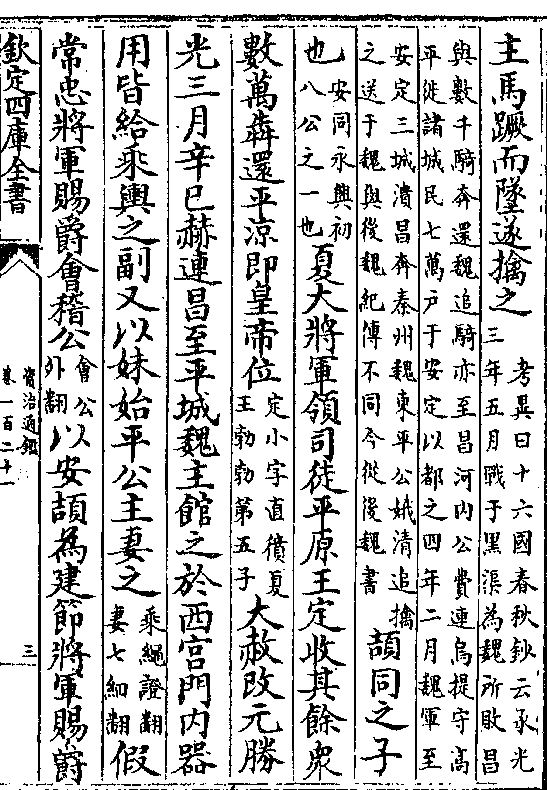 主馬蹶而墜遂擒之考異曰十六國春秋鈔云承光三年五月戰于黑渠為魏所敗昌
與數千騎奔還魏追騎亦至昌河内公費連烏提守高平徙諸城民七萬户于安定以都之四年二月魏軍至
安定三城潰昌奔秦州魏東平公娥清追擒之送于魏與後魏紀傳不同今從後魏書頡同之子
也安同永興初八公之一也夏大將軍領司徒平原王定收其餘衆
數萬犇還平涼即皇帝位定小字直獖夏王勃勃第五子大赦改元勝
光三月辛巳赫連昌至平城魏主館之於西宫門内器
用皆給乘輿之副又以妹始平公主妻之乘繩證翻妻七細翻假
常忠將軍賜爵會稽公會公外翻以安頡為建節將軍賜爵
欽定四庫全書
資治通鑑
卷一百二十一
三